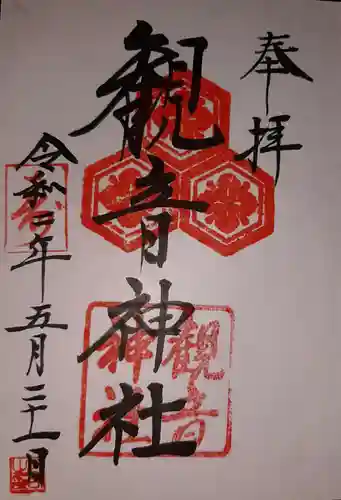 奉拝
観音神社
観音
神社
令和四年五月二十一日